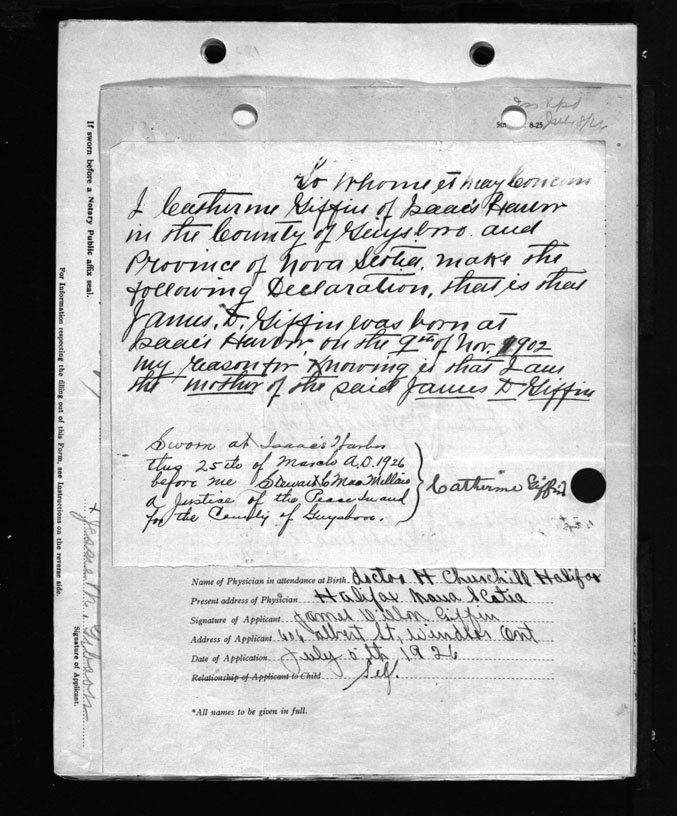 8-25
To Whome it may Concern
I Catherine Giffin of Isaac's Harbor
in the County of Guysboro. and
Province of Nova Scotia. make the
following Declaration, that is that
James. D. Giffin was born at
Isaac's Harbor, on the 9th of Nov. 1902
my reason for Knowing is that I am
the mother of the said James D Giffin
Sworn at Isaac's Harbor
this 25th of March A.D. 1926
before me Steward C MacMillan
a Justice of the Peace in and
for the County of Guysboro.
Catherine Giffin
Name of Physician in attendance at Birth. doctor H Churchill Halifax
Present address of Physician Halifax Nova Scotia
Signature of Applicant James Giffin
Address of Applicant Albert St, Windsor Ont
Date of Application July 1926
Relationship of Applicant to Child Self.
*All names to be given in full.
If sworn before a Notary Public affix seal.
For Information respecting the filling out of this Form, see Instructions on the reverse side.
Gibson
Signature of Applicant.